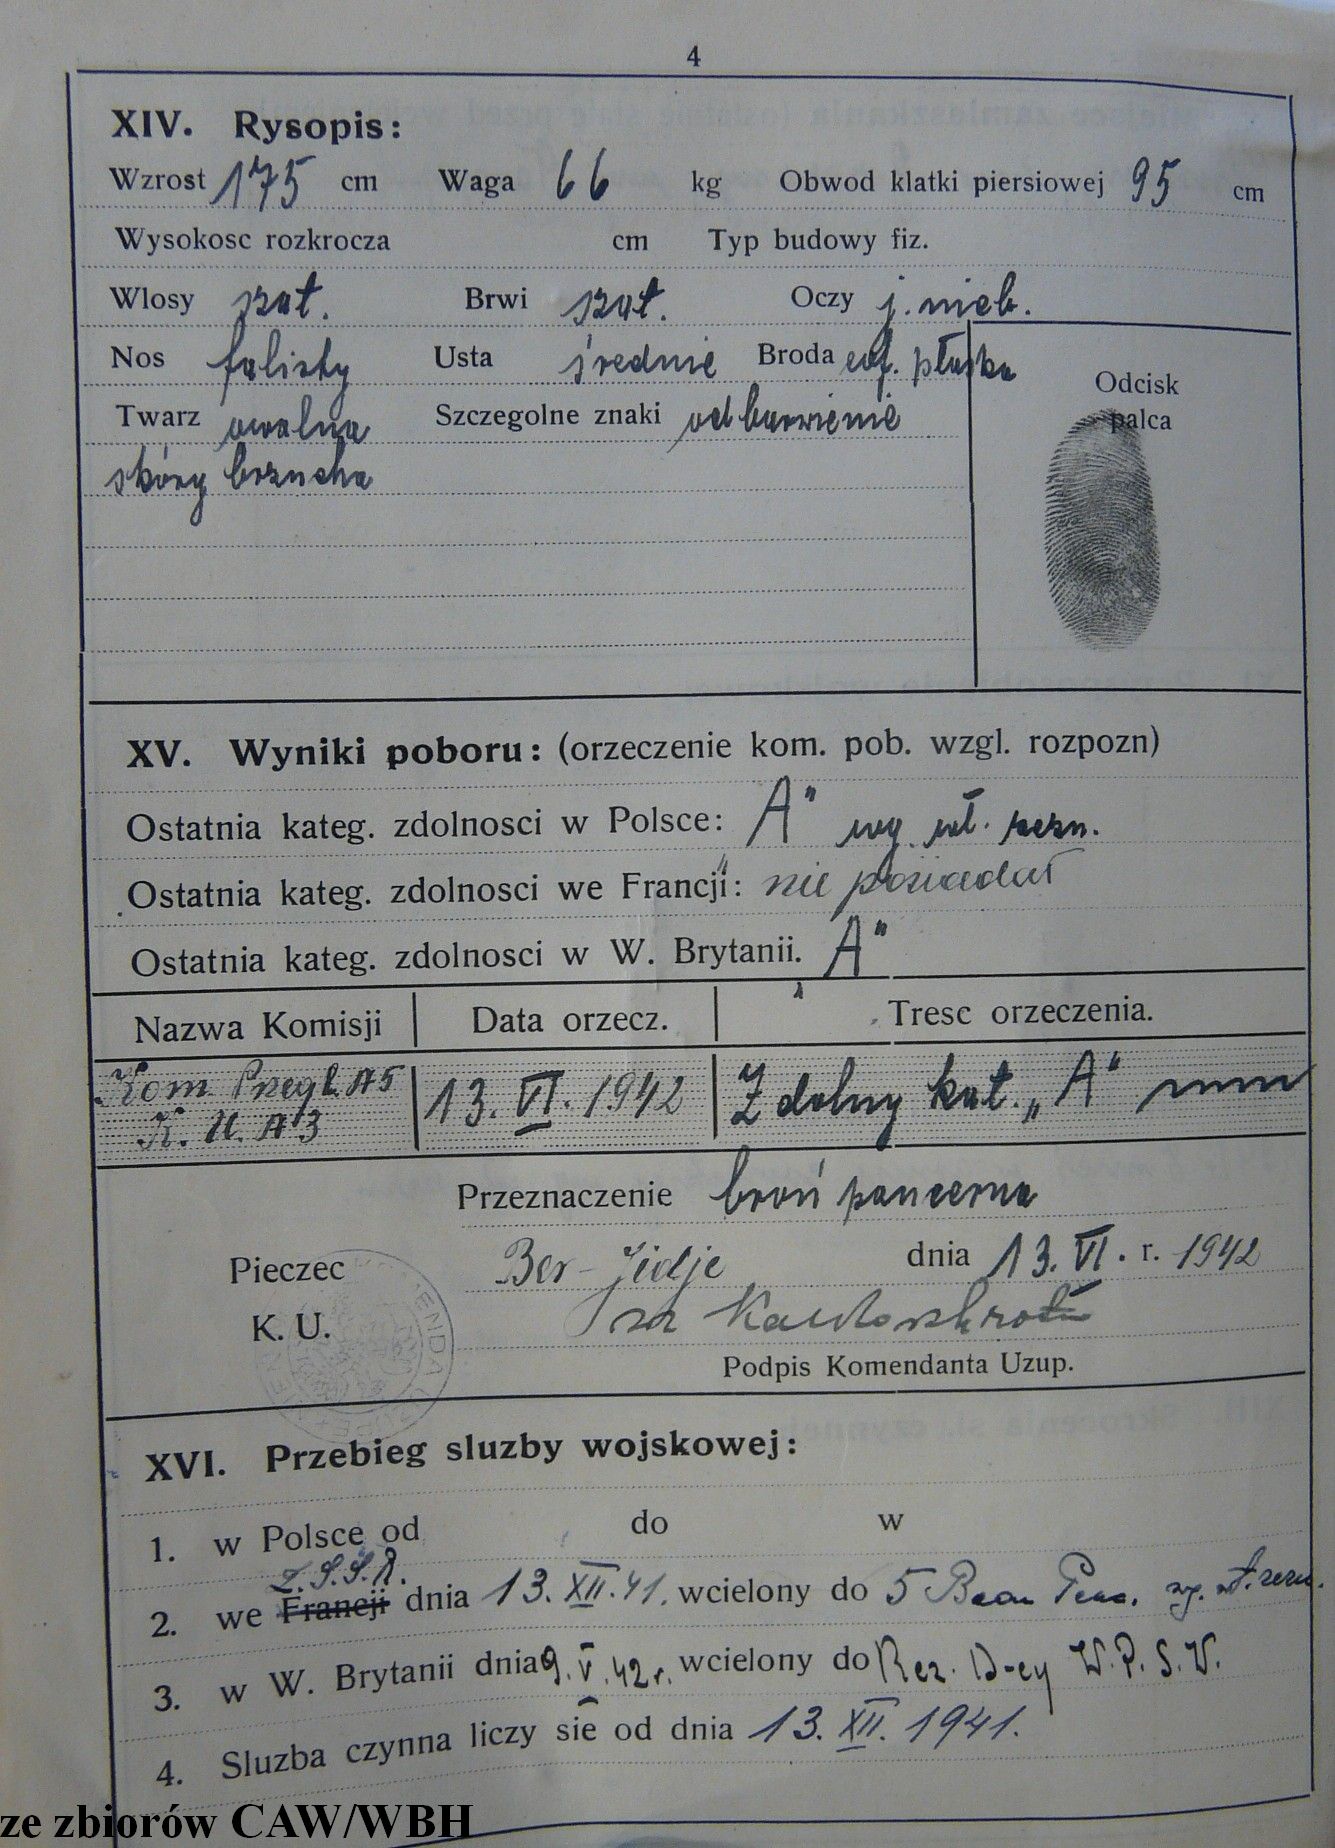 4
XIV. Rysopis:
Wzrost 175 cm Waga 66 kg Obwod klatki piersiowej 95 cm
Wysokosc rozkrocza cm Typ budowy fiz.
Wlosy szat. Brwi szat. Oczy j. nieb.
Nos falisty Usta średnie Broda płaska
Twarz owalna Szczegolne znaki odbarwienie
skóry brzucha
Odcisk
palca
XV. Wyniki poboru: (orzeczenie kom. pob. wzgl. rozpozn)
Ostatnia kateg. zdolnosci w Polsce: „A" wg. wł. zezn.
Ostatnia kateg. zdolnosci we Francji: nie posiadał
Ostatnia kateg. zdolnosci w W. Brytanii. „A"
Nazwa Komisji Data orzecz. Tresc orzeczenia.
Kom. Przegl. A5 13. VI. 1942 Zdolny kat. „A"
K. U. A3
Przeznaczenie broń pancerna
Pieczec dnia 13. VI. r. 1942
K. U.
Podpis Komendanta Uzup.
XVI. Przebieg sluzby wojskowej:
1. w Polsce od do w
Z.S.S.R.
2. we Francji dnia 13. XII. 41. wcielony do 5 wg. wł. zezn.
3. w W. Brytanii dnia 9. V. 42 r. wcielony do Rez. D-cy W.P.S.W.
4. Sluzba czynna liczy sie od dnia 13. XII. 1941.
ze zbiorów CAW/WBH